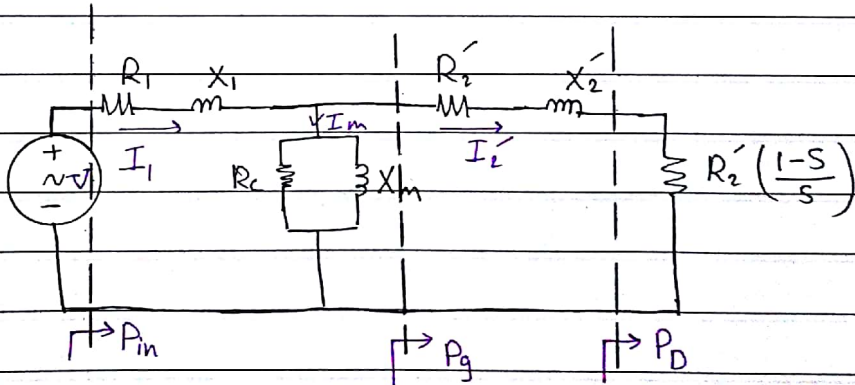 R₁ X₁ R₂′ X₂′
+
~V
−
I₁
Im
Rc
Xm
I₂′
R₂′ (1-S/S)
Pin
Pg
PD